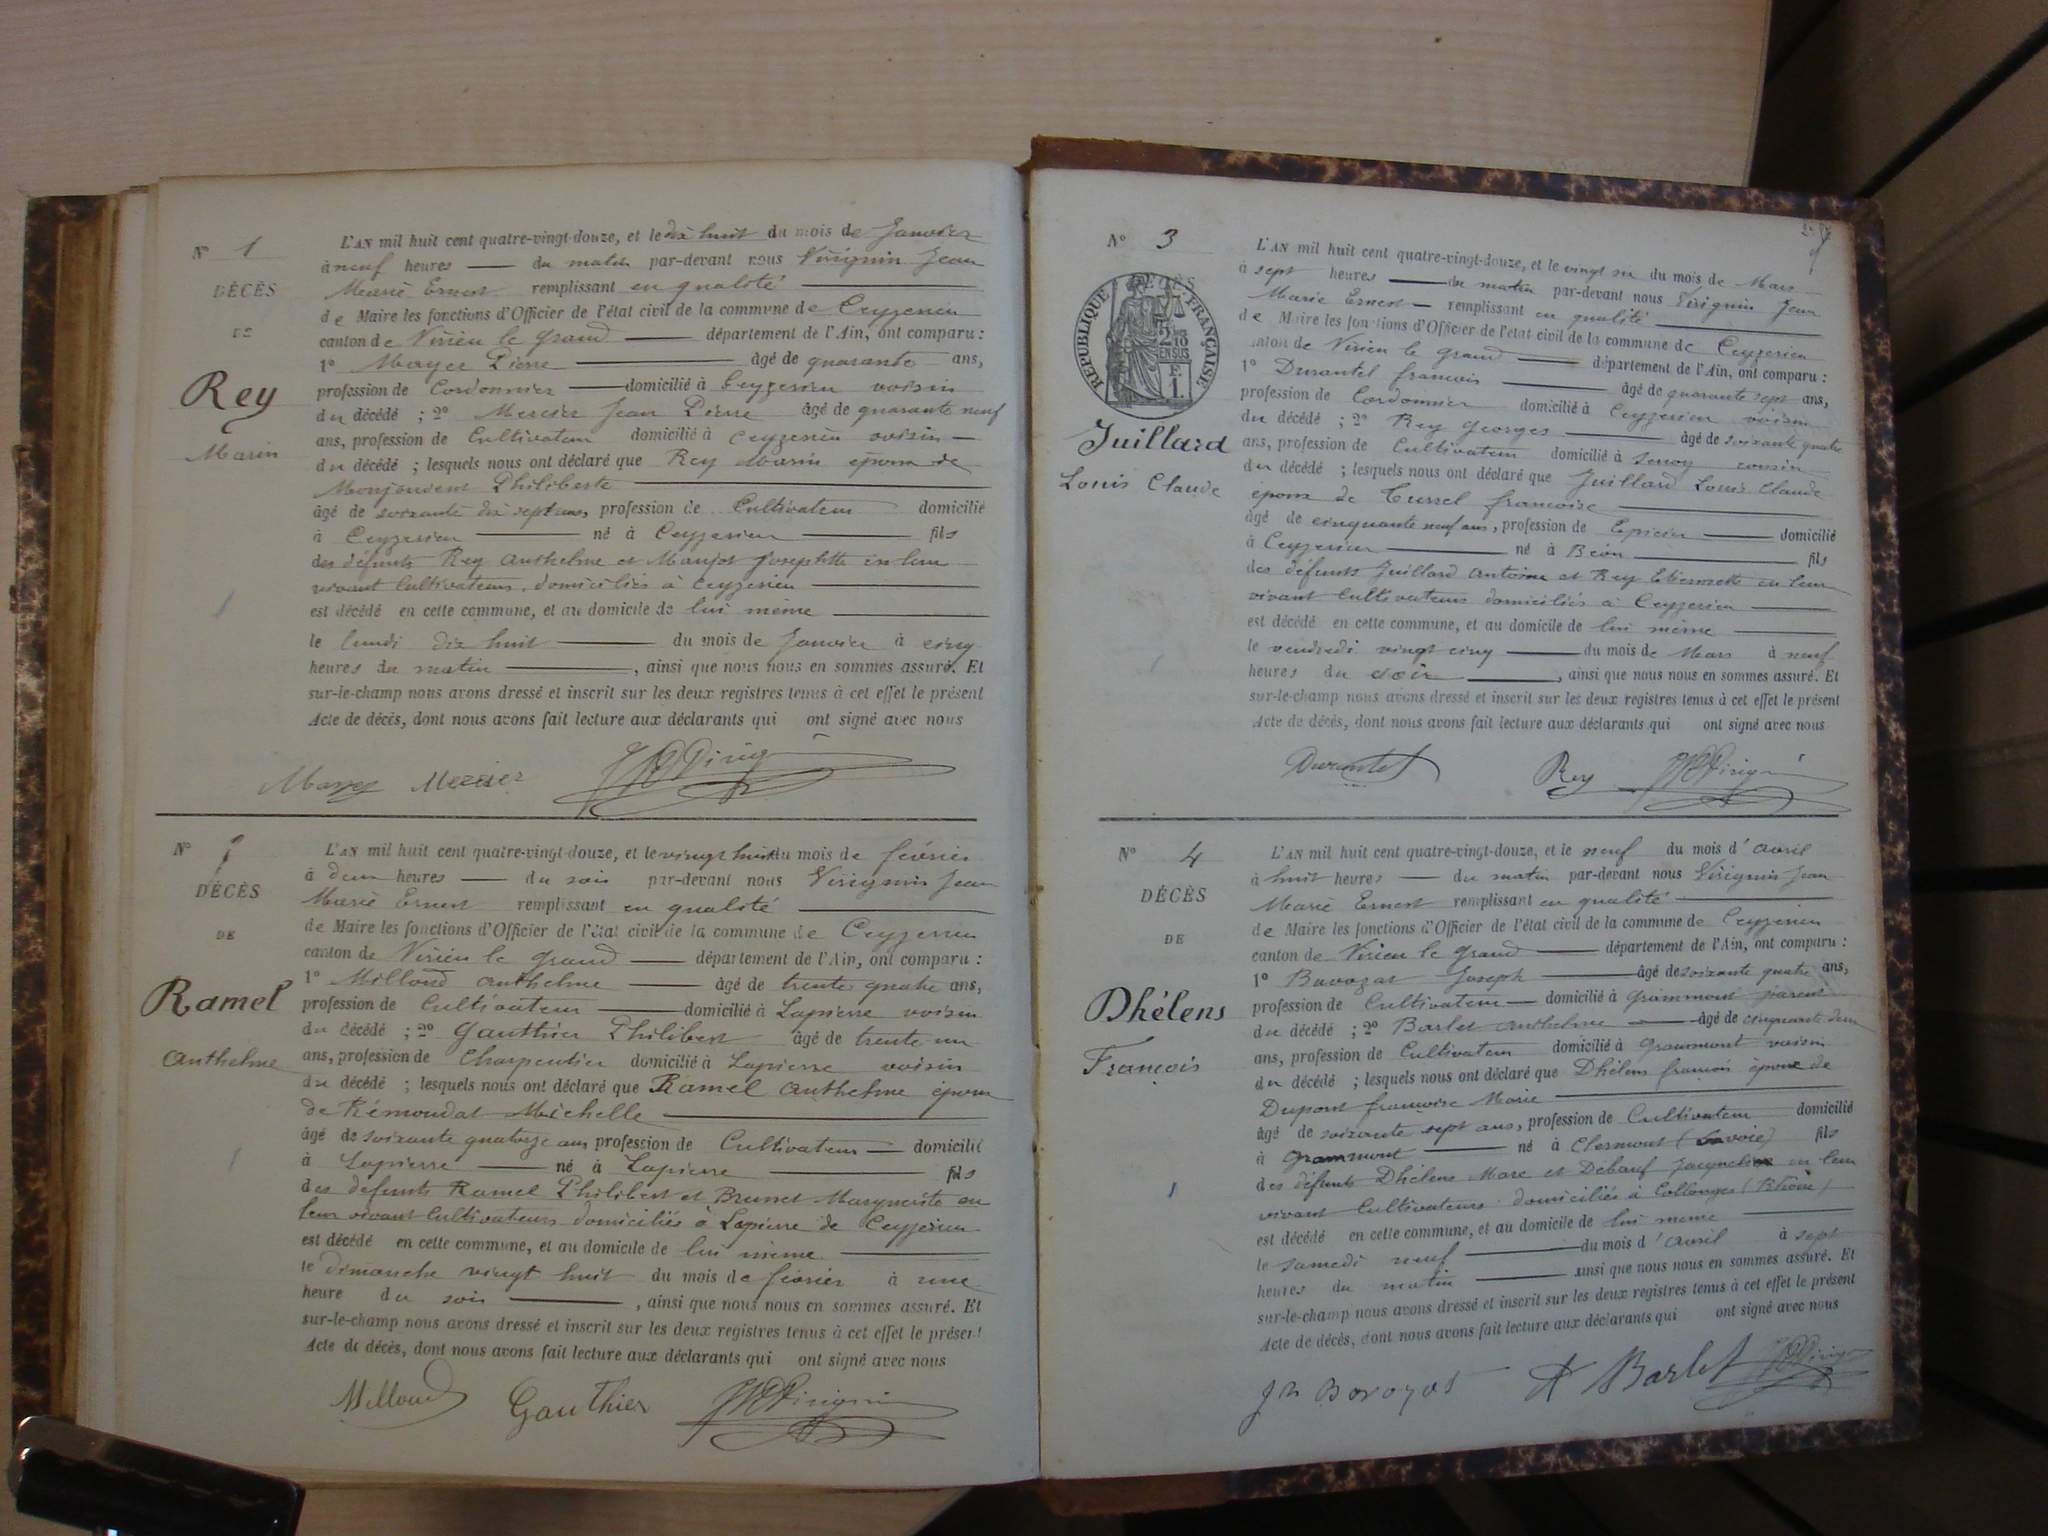 N° 1
DÉCÈS
DE
Rey
Marin
L'AN mil huit cent quatre-vingt-douze, et le dix huit du mois de Janvier
à neuf heures du matin par-devant nous Virignin Jean
Marie Ernest remplissant en qualité
de Maire les fonctions d'Officier de l'état civil de la commune de Ceyzerieu
canton de Virieu le grand département de l'Ain, ont comparu :
1° Pierre âgé de quarante ans,
profession de Cordonnier domicilié à Ceyzerieu voisin
du décédé ; 2° Mercier Jean Pierre âgé de quarante neuf
ans, profession de Cultivateur domicilié à Ceyzerieu voisin
du décédé ; lesquels nous ont déclaré que Rey Marin époux de
Philiberte
âgé de soixante dix sept ans, profession de Cultivateur domicilié
à Ceyzerieu né à Ceyzerieu fils
des défunts Rey Anthelme et Josephtte en leur
vivant Cultivateurs domiciliés à Ceyzerieu
est décédé en cette commune, et au domicile de lui même
le lundi dix huit du mois de Janvier à cinq
heures du matin , ainsi que nous nous en sommes assuré. Et
sur-le-champ nous avons dressé et inscrit sur les deux registres tenus à cet effet le présent
Acte de décès, dont nous avons fait lecture aux déclarants qui ont signé avec nous
Mercier
N°
DÉCÈS
DE
Ramel
Anthelme
L'AN mil huit cent quatre-vingt-douze, et le vingt huit du mois de février
à deux heures du soir par-devant nous Virignin Jean
Marie Ernest remplissant en qualité
de Maire les fonctions d'Officier de l'état civil de la commune de Ceyzerieu
canton de Virieu le grand département de l'Ain, ont comparu :
1° Milloud Anthelme âgé de trente quatre ans,
profession de Cultivateur domicilié à Lapierre voisin
du décédé ; 2° Gauthier Philibert âgé de trente un
ans, profession de Charpentier domicilié à Lapierre voisin
du décédé ; lesquels nous ont déclaré que Ramel Anthelme époux
de Rémondat Michelle
âgé de soixante quatorze ans, profession de Cultivateur domicilié
à Lapierre né à Lapierre fils
des défunts Ramel Philibert et Brunet Marguerite en
leur vivant Cultivateurs domiciliés à Lapierre de Ceyzerieu
est décédé en cette commune, et au domicile de lui même
le dimanche vingt huit du mois de février à une
heure du soir , ainsi que nous nous en sommes assuré. Et
sur-le-champ nous avons dressé et inscrit sur les deux registres tenus à cet effet le présent
Acte de décès, dont nous avons fait lecture aux déclarants qui ont signé avec nous
Milloud Gauthier
N° 3
DÉCÈS
RÉPUBLIQUE FRANÇAISE
2/10
EN SUS
F.
1.
Juillard
Louis Claude
L'AN mil huit cent quatre-vingt-douze, et le vingt six du mois de Mars
à sept heures du matin par-devant nous Virignin Jean
Marie Ernest remplissant en qualité
de Maire les fonctions d'Officier de l'état civil de la commune de Ceyzerieu
canton de Virieu le grand département de l'Ain, ont comparu :
1° Durantel françois âgé de quarante sept ans,
profession de Cordonnier domicilié à Ceyzerieu voisin
du décédé ; 2° Rey Georges âgé de soixante quatre
ans, profession de Cultivateur domicilié à voisin
du décédé ; lesquels nous ont déclaré que Juillard Louis Claude
époux de françoise
âgé de cinquante neuf ans, profession de Epicier domicilié
à Ceyzerieu né à Béon fils
des défunts Juillard Antoine et Rey Etiennette en leur
vivant Cultivateurs domiciliés à Ceyzerieu
est décédé en cette commune, et au domicile de lui même
le vendredi vingt cinq du mois de Mars à neuf
heures du soir , ainsi que nous nous en sommes assuré. Et
sur-le-champ nous avons dressé et inscrit sur les deux registres tenus à cet effet le présent
Acte de décès, dont nous avons fait lecture aux déclarants qui ont signé avec nous
Durantel Rey
N° 4
DÉCÈS
DE
Dhélens
François
L'AN mil huit cent quatre-vingt-douze, et le neuf du mois d'avril
à huit heures du matin par-devant nous Virignin Jean
Marie Ernest remplissant en qualité
de Maire les fonctions d'Officier de l'état civil de la commune de Ceyzerieu
canton de Virieu le grand département de l'Ain, ont comparu :
1° Bavozat Joseph âgé de soixante quatre ans,
profession de Cultivateur domicilié à grammont parent
du décédé ; 2° Barlet Anthelme âgé de cinquante deux
ans, profession de Cultivateur domicilié à grammont voisin
du décédé ; lesquels nous ont déclaré que Dhélens françois époux de
Dupont françoise Marie
âgé de soixante sept ans, profession de Cultivateur domicilié
à grammont né à Clermont (Savoie) fils
des défunts Dhélens Marc et en leur
vivant Cultivateurs domiciliés à Collonges (Rhône)
est décédé en cette commune, et au domicile de lui même
le samedi neuf du mois d'avril à sept
heures du matin ainsi que nous nous en sommes assuré. Et
sur-le-champ nous avons dressé et inscrit sur les deux registres tenus à cet effet le présent
Acte de décès, dont nous avons fait lecture aux déclarants qui ont signé avec nous
A Barlet